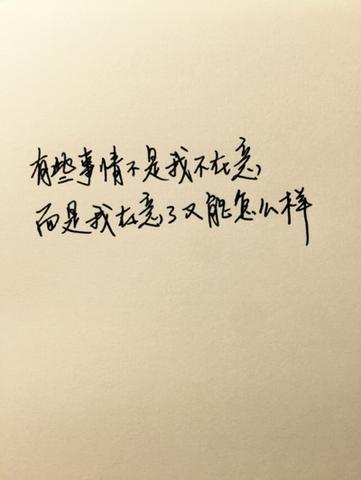 有些事情不是我不在意,
而是我在意了又能怎么样